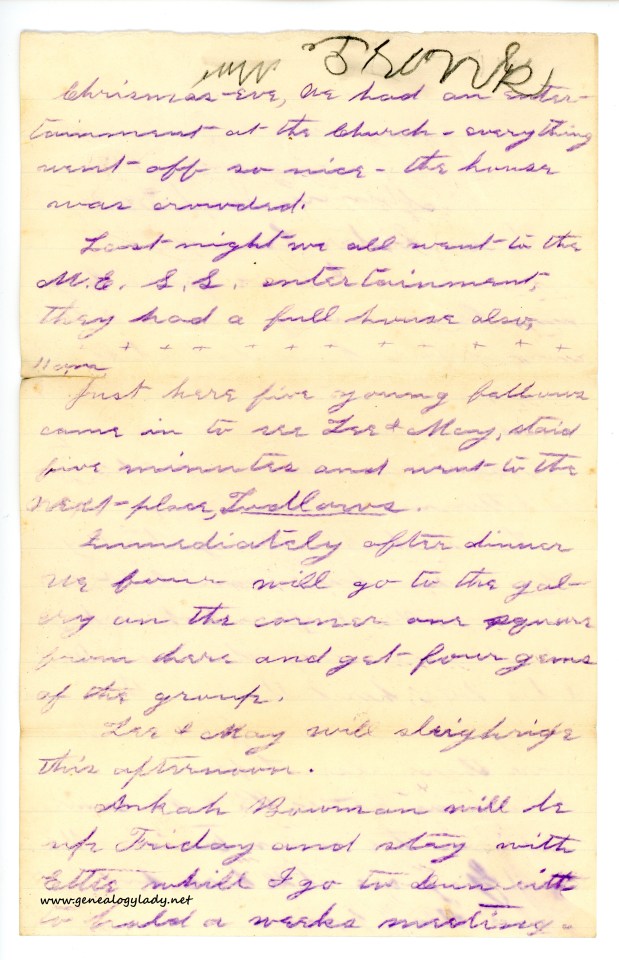 Chrismas-eve, we had an enter-
tainment at the Church - everything
went off so nice - the house
was crowded.
Last night we all went to the
M.E. S.S. entertainment,
they had a full house also,
+ + + + + + + + + + +
11 a.m.
Just here five young fallows
came in to see Lee & May, staid
five minutes and went to the
next-place, Ludlows.
Immediately after dinner
we four will go to the gal-
ery on the corner one square
from here and get four gems
of the group.
Lee & May will sleighride
this afternoon.
Ankah Bowman will be
up Friday and stay with
Ettie whill I go to
to hold a weeks meeting.
www.genealogylady.net